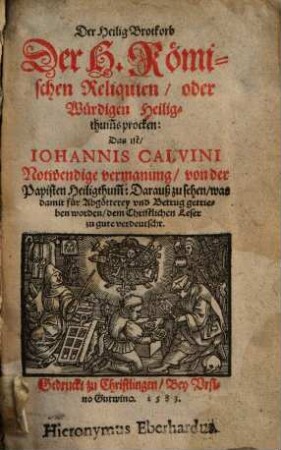 Der Heilig Brotkorb
Der H. Römi-
schen Reliquien / oder
Würdigen Heilig-
thum̃s procken:
Das ist /
IOHANNIS CALVINI
Notwendige vermanung / von der
Papisten Heiligthum̃: Darauß zu sehen / was
damit für Abgötterey vnd Betrug getrie-
ben worden / dem Christlichen Leser
zu gute verdeutscht.
Gedruckt zu Christlingen / Bey Vrsi-
no Gutwino. 1583.
Hieronymus Eberhardus